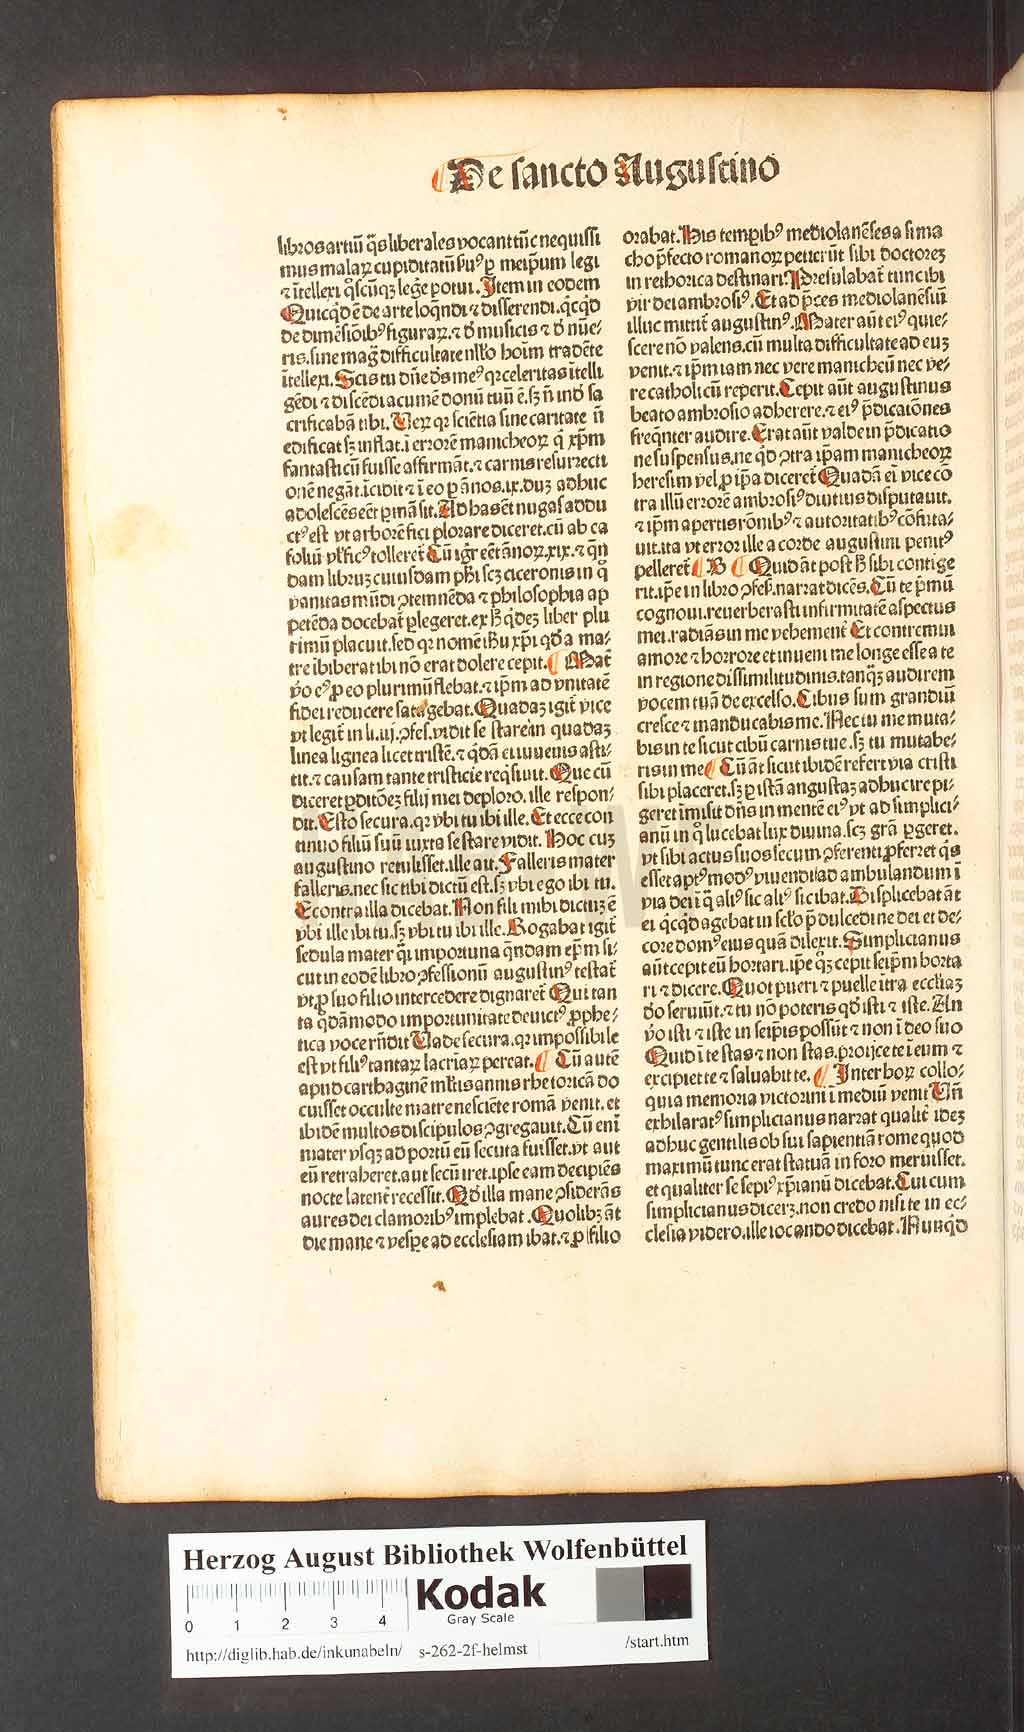 De sancto Augustino
libros artiū q̄s liberales vocant tūc nequissi
mus malaꝝ cupiditatū suꝰ ꝑ meip̄um legi
⁊ ītellexi q̄scūqꝫ leg̃e potui. Item in eodem
Quicq̇d ē de arte loq̄ndi ⁊ disserendi. q̇cq̇d
de dimēsiōibꝰ figuraꝝ. ⁊ d̓ musicis ⁊ d̓ nūe⸗
ris. sine mag̃ difficultate nll̓o hoīm tradēte
ītellexi. Scis tu dn̄e de̓s meꝰ qꝛ celeritas ītelli
gēdi ⁊ discēdi acumē donū tuū ē. sꝫ n̄ ind̓ sa
crificabā tibi. Ueꝝ qꝛ sciētia sine caritate n̄
edificat sꝫ inflat. ī errorē manicheoꝝ q̇ xp̄m
fantasticū fuisse affirmāt. ⁊ carnis resurrecti
onē negāt. īcidit ⁊ ī eo ꝑ ānos .ix. duꝫ adhuc
adolescēs eēt ꝑmāsit. Ad has ēt nugas addu
ctꝰ est vt arborē fici plorare diceret. cū ab ea
foliū vl̓ ficꝰ tolleret̄ Cū ig̓r eēt ānoꝝ .xix. ⁊ q̄n
dam libruꝫ cuiusdam ph̓i scꝫ ciceronis in q̊
vanitas mūdi ꝯtemnēda ⁊ philosophia ap
petēda docebat̄ ꝑlegeret. ex h̓ q̇deꝫ liber plu
rimū placuit. sed qꝛ nomē ih̓u xp̄i qd̓ a ma⸗
tre ībiberat ibi nō erat dolere cepit. Mat̄
v̓o eꝰ ꝓ eo plurimū flebat. ⁊ ip̄m ad vnitatē
fidei reducere satagebat. Quadaꝫ igit̄ vice
vt legit̄ in li. iij. ꝯfes. vidit se stare in quadaꝫ
linea lignea licet tristē. ⁊ q̇dā ei iuuenis asti⸗
tit. ⁊ causam tante tristicie reqͥsiuit. Que cū
diceret ꝑditōeꝫ filij mei deploro. ille respon⸗
dit. Esto secura. qꝛ vbi tu ibi ille. Et ecce con
tinuo filiū suū iuxta se stare vidit. Hoc cuꝫ
augustino retulisset. ille ait. Falleris mater
falleris. nec sic tibi dictū est. sꝫ vbi ego ibi tu.
Econtra illa dicebat. Non fili mihi dictuꝫ ē
vbi ille ibi tu. sꝫ vbi tu ibi ille. Rogabat igit̄
sedula mater q̇ importuna q̄ndam ep̄m si⸗
cut in eodē libro ꝯfessionū augustinꝰ testat̄
vt ꝓ suo filio intercedere dignaret̄ Qui tan
ta q̇dāmodo importunitate deuictꝰ ꝓphe⸗
tica voce rn̄dit Uade secura. qꝛ impossibile
est vt filiꝰ tantaꝝ lacrīaꝝ pereat. Cū autē
apud carthaginē ml̓tis annis rhetoricā do
cuisset occulte matre nesciēte romā venit. et
ibidē multos discipulos ꝯgregauit. Cū enī
mater vsqꝫ ad portū eū secuta fuisset. vt aut
eū retraheret. aut secū iret. ipse eam decipiēs
nocte latent̄ recessit. Qd̓ illa mane ꝯsiderās
aures dei clamoribꝰ implebat. Quolibꝫ āt
die mane ⁊ vesꝑe ad ecclesiam ibat. ⁊ ꝓ filio
orabat. His temꝑibꝰ mediolanēses a sima
cho p̄fecto romanoꝝ petierūt sibi doctoreꝫ
in rethorica destinari. Presulabat̄ tunc ibi
vir dei ambrosiꝰ. Et ad p̄ces mediolanēsiū
illuc mittit̄ augustinꝰ. Mater aūt eiꝰ quie⸗
scere nō valens. cū multa difficultate ad euꝫ
venit. ⁊ ip̄m iam nec vere manicheū nec ve⸗
re catholicū reperit. Cepit aūt augustinus
beato ambrosio adherere. ⁊ eiꝰ p̄dicatiōnes
freq̄nter audire. Erat aūt valde in p̄dicatio
ne suspensus. ne q̇d ꝯtra ip̄am manicheoꝝ
heresim vel ꝓ ip̄a diceret̄ Quadā eī vice cō
tra illū errorē ambrosiꝰ diutius disputauit.
⁊ ip̄m apertis rōnibꝰ ⁊ autoritatibꝰ cōfuta⸗
uit. ita vt error ille a corde augustini penitꝰ
pelleret̄ B Quid āt post h̓ sibi contige
rit. ip̄e in libro ꝯfes. narrat dicēs. Cū te p̄mū
cognoui. reuerberasti infirmitatē aspectus
mei. radiās in me vehement̄ Et contremui
amore ⁊ horrore et inueni me longe esse a te
in regione dissimilitudinis. tanqꝫ audirem
vocem tuā de excelso. Cibus sum grandiū
cresce ⁊ manducabis me. Nec tu me muta⸗
bis in te sicut cibū carnis tue. sꝫ tu mutabe⸗
ris in me Cū āt sicut ibidē refert via cristi
sibi placeret. sꝫ ꝑ istā angustaꝫ adhuc ire pi⸗
geret imisit dn̄s in mentē eiꝰ vt ad simplici⸗
anū in q̊ lucebat lux diuina. scꝫ grā ꝑgeret.
vt sibi actus suos secum ꝯferenti ꝓferret q̄s
esset aptꝰ modꝰ viuendi ad ambulandum ī
via dei ī q̊ aliꝰ sic aliꝰ sic ibat. Displicebat āt
ei q̇cq̇d agebat in scl̓o p̄ dulcedine dei et de⸗
core domꝰ eius quā dilexit. Simplicianus
aūt cepit eū hortari. ip̄e qꝫ cepit seip̄m horta
ri ⁊ dicere. Quot pueri ⁊ puelle ītra eccl̓iaꝫ
d̓o seruiūt. ⁊ tu nō poteris qd̓ isti ⁊ iste. An
v̓o isti ⁊ iste in seip̄is possūt ⁊ non ī deo suo
Quid ī te stas ⁊ non stas. proijce te ī eum ⁊
excipiet te ⁊ saluabit te. Inter hoꝝ collo⸗
quia memoria victorini ī mediū venit Un̄
exhilaratꝰ simplicianus narrat qualit̄ ideꝫ
adhuc gentilis ob sui sapientiā rome quod
maximū tunc erat statuā in foro meruisset.
et qualiter se sepiꝰ xp̄ianū dicebat. Cui cum
simplicianus dicerꝫ. non credo nisi te in ec⸗
clesia videro. ille iocando dicebat. Nunqͥd
Herzog August Bibliothek Wolfenbüttel
0 1 2 3 4
Kodak
Gray Scale
http://diglib.hab.de/inkunabeln/ s-262-2f-helmst /start.htm